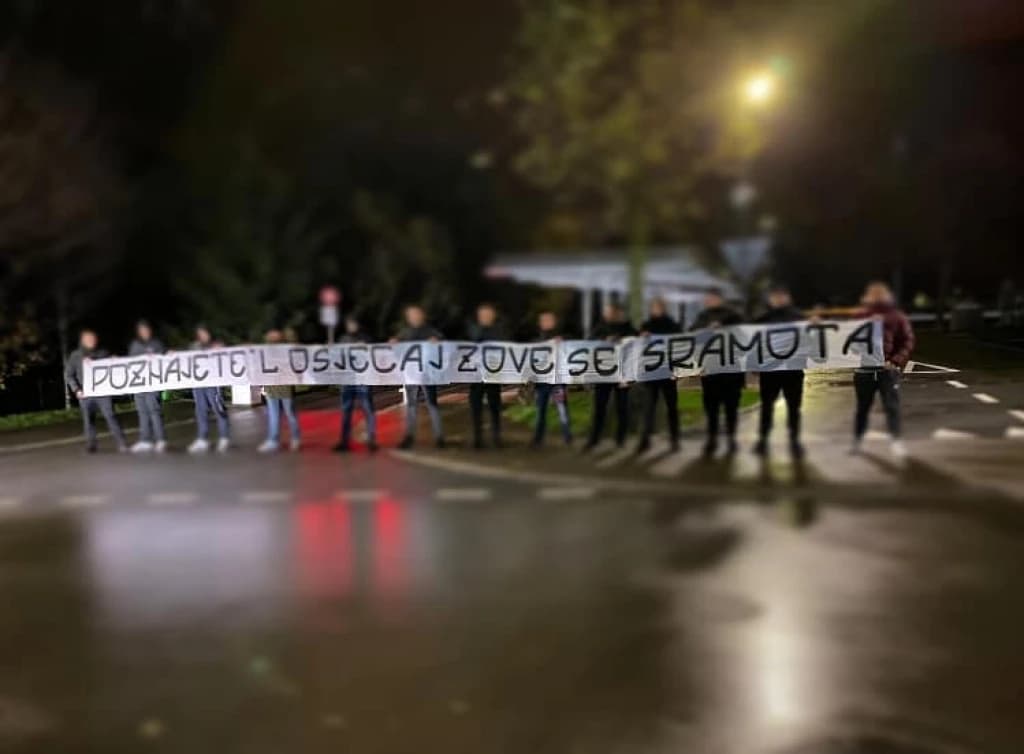 POZNAJETE L' OSJEĆAJ ZOVE SE SRAMOTA